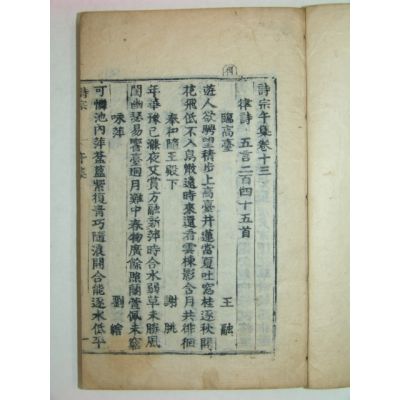 詩宗午集卷十三
律詩 五言二百四十五首
臨高臺 王融
遊人欲騁望積步上高臺井蓮當夏吐窓桂逐秋開
花飛低不入鳥散遠時來還看雲棟影含月共徘徊
奉和隨王殿下 謝朓
年華豫已滌夜艾賞方融新萍時合水弱草未勝風
閨幽瑟易響臺迥月難中春物廣餘照蘭萱佩未窮
詠萍 劉繪
可憐池內萍葐蒀紫復青巧隨浪開合能逐水低平
詩宗 午集 一